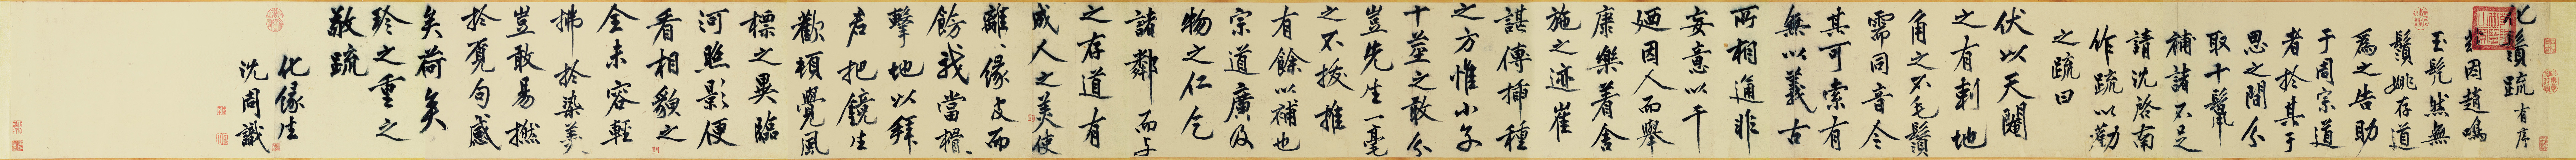 化鬚疏有序
茲因趙鳴
玉髡然無
鬚姚存道
為之告助
于周宗道
者於其于
思之間分
取十鬣
補諸不足
請沈啓南
作疏以勸
之疏曰
伏以天閹
之有刺地
角之不毛鬚
需同音今
其可索有
無以義古
所相通非
妄意以干
廼因人而舉
康樂着舍
施之迹崔
諶傳插種
之方惟小子
十莖之敢分
豈先生一毫
之不拔推
有餘以補也
宗道廣及
物之仁乞
諸鄰而与
之存道有
成人之美使
離〻緣皮而
飾我當榾〻
擊地以拜
君把鏡生
歡頓覺風
標之異臨
河照影便
看相貌之
全未容輕
拂於染羹
豈敢易撚
於覓句感
矣荷矣
珍之重之
敬疏
化緣生
沈周識